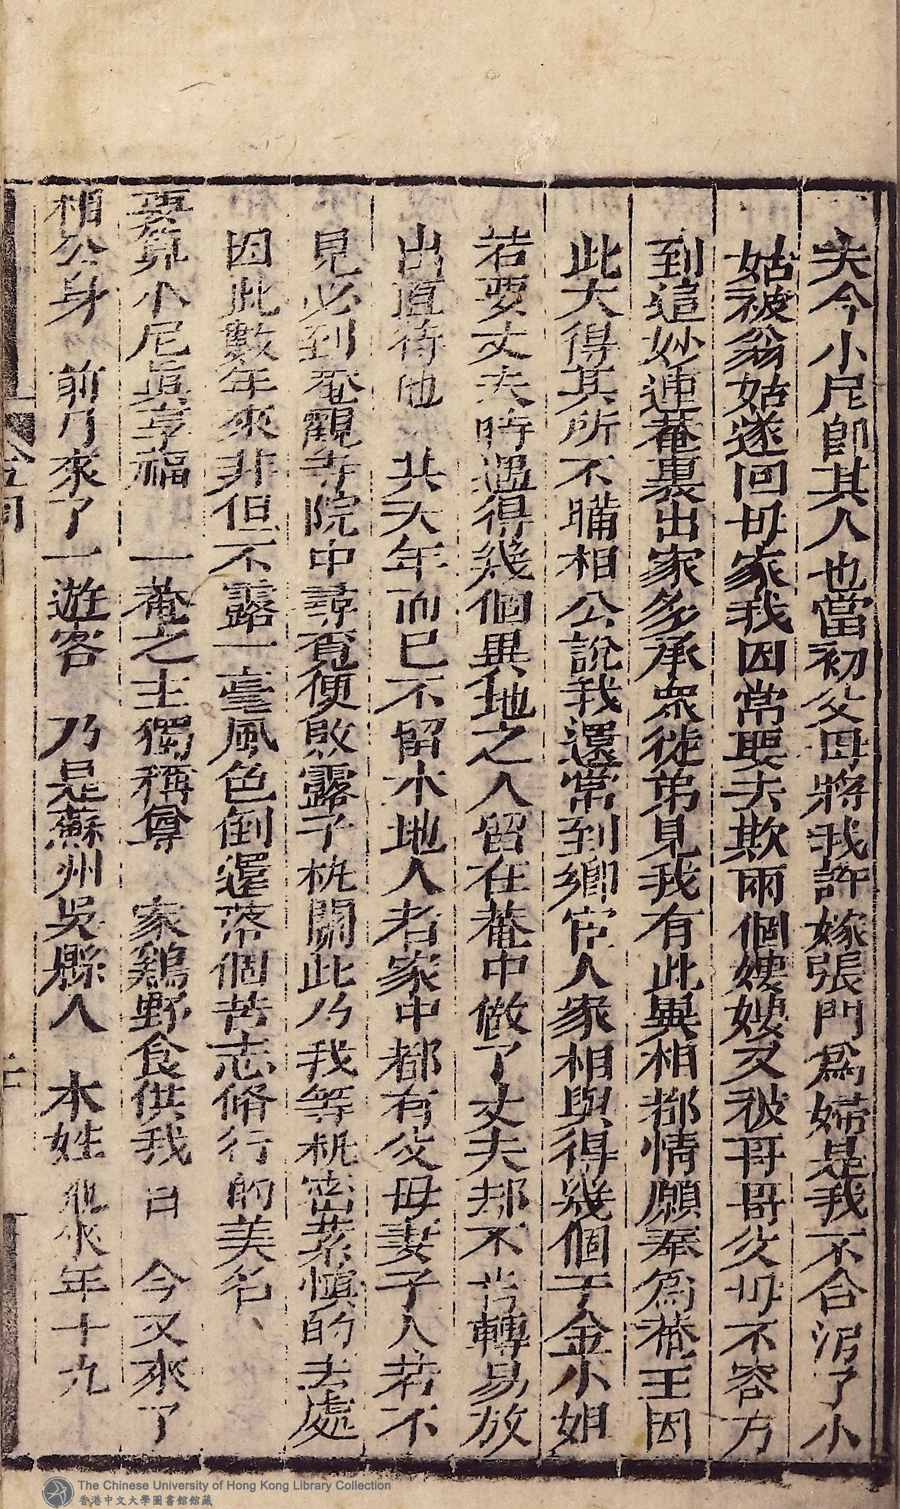 夫今小尼卽其人也當初父母將我許嫁張門爲婦是我不合泥了小
姑被翁姑遂回母家我因常耍夫欺兩個嫂嫂又被哥哥父母不容方
到這妙蓮菴裏出家多承衆徒弟見我有此異相都情願奉爲菴主因
此大得其所不瞞相公說我還常到鄉宦人家相與得幾個千金小姐
若要丈夫時遇得幾個異地之人留在菴中做了丈夫却不肯轉易放
出直待他 共天年而已不留本地人者家中都有父母妻子人若不
見必到菴觀寺院中尋覓便敗露了机關此乃我等机密藂慎的去處
因此數年來非但不露一毫風色倒還落個苦志脩行的美名、
要算小尼眞享福 一菴之主獨稱尊 家鷄野食供我 今又來了
相公身 前月來了一遊客 乃是蘇州吳縣人 本姓 來年十九
The Chinese University of Hong Kong Library Collection
香港中文大學圖書館館藏